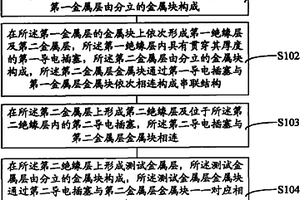 第一金属层由分立的金属块构成
在所述第一金属层的金属块上依次形成第一绝缘层
及第二金属层，所述第一绝缘层内具有贯穿其厚度
的第一导电插塞，所述第二金属层由分立的金属块
构成，所述第二金属层金属块通过第一导电插塞与
第一金属层金属块依次相连构成串联结构
S102
在所述第二金属层上形成第二绝缘层及位于所述第
二绝缘层内的第二导电插塞，所述第二导电插塞与
第二金属层金属块相连
S103
在所述第二绝缘层上形成测试金属层，所述测试金
属层由分立的金属块构成，所述测试金属层金属块
通过第二导电插塞与第二金属层金属块一一对应相
S104